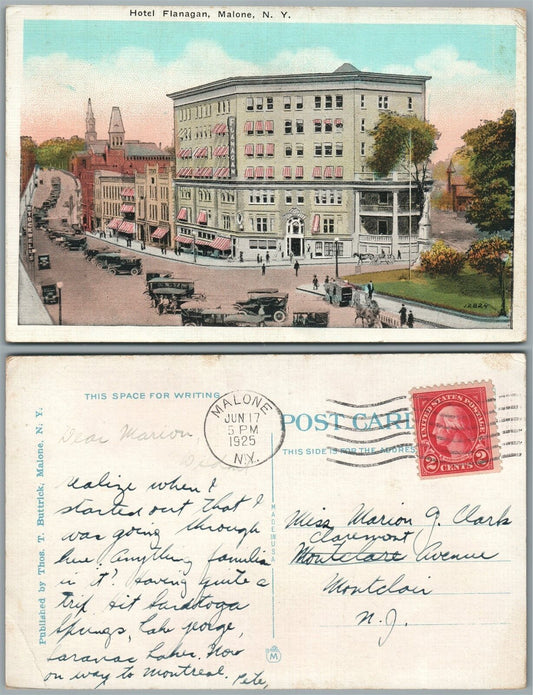 Hotel Flanagan, Malone, N. Y.
FLANAGAN
12824
THIS SPACE FOR WRITING
MALONE
JUN 17
5 PM
1925
N.Y.
UNITED STATES POSTAGE
2 CENTS 2
POST CARD
THIS SIDE IS FOR THE ADDRESS
Dear Marion,
Didn't
realize when I
started out that I
was going through
here. Anything familiar
in it? Having quite a
trip. Hit Saratoga
Springs, Lake George,
Saranac Lakes. Now
on way to Montreal. Pete,
Published by Thos. T. Buttrick, Malone, N. Y.
MADE IN USA
M
Miss Marion G. Clark
Claremont
Montclare Avenue
Montclair
N. J.